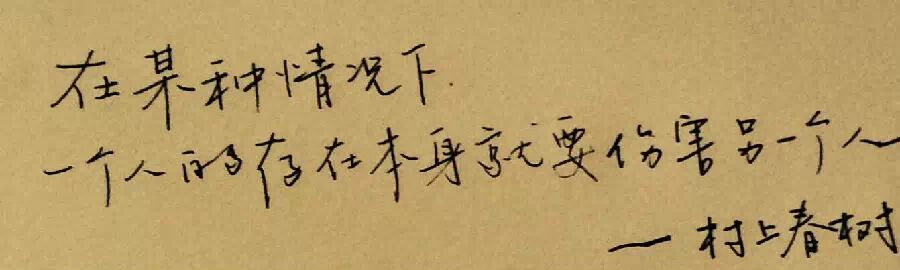 在某种情况下.
一个人的存在本身就要伤害另一个人
—村上春树